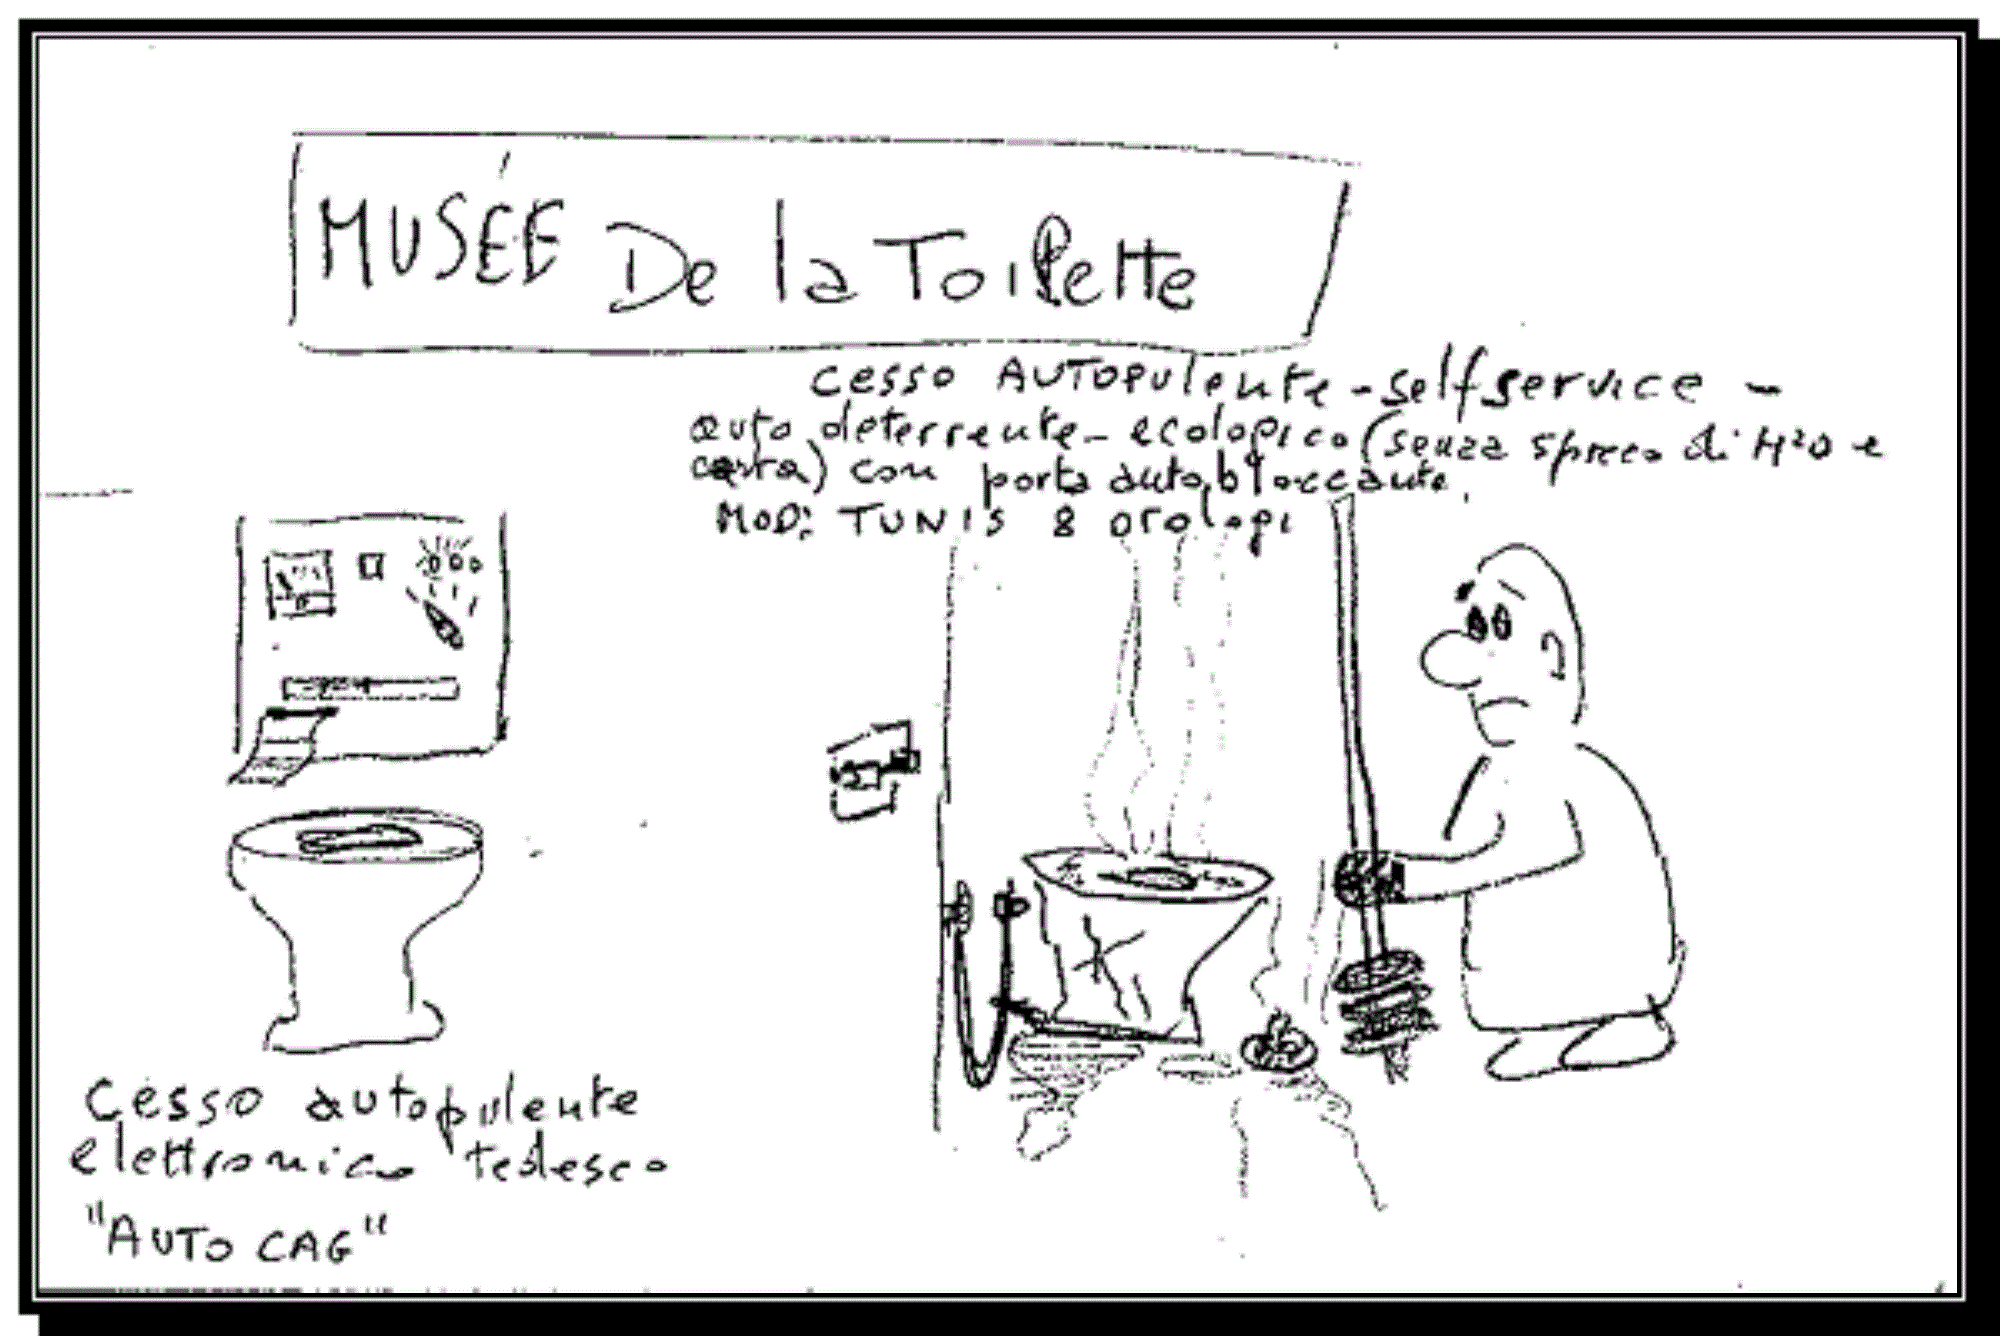 MUSÉE De la Toilette
cesso AUTOPulente - selfservice -
auto deterrente - ecologico (senza spreco di H2O e
carta) con porta autobloccante.
MOD: TUNIS 8 orologi
Cesso autopulente
elettronico tedesco
"AUTO CAG"